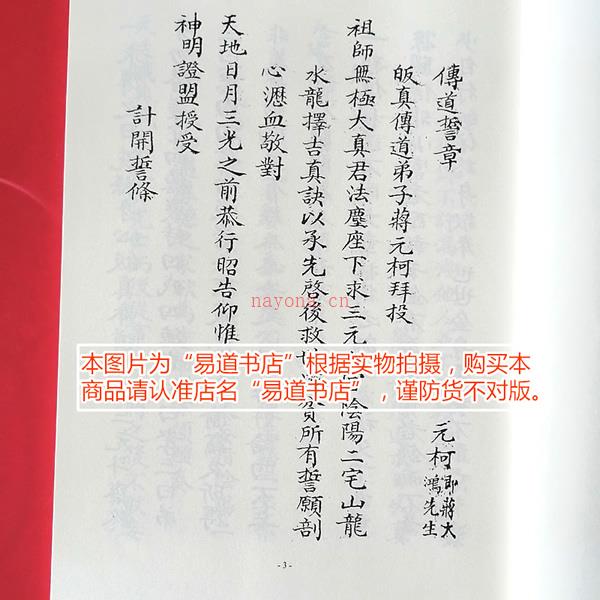 傳道誓章
皈真傳道弟子蔣元柯拜投
元柯即蔣大鴻先生
祖師無極大真君法麈座下求三元
陰陽二宅山龍
水龍擇吉真訣以承先啓後救
貧所有誓願剖
心瀝血敬對
天地日月三光之前恭行昭告仰惟
神明證盟授受
計開誓條
nayona.cn
本图片为“易道书店”根据实物拍摄，购买本
商品请认准店名“易道书店”，谨防货不对版。
-3-